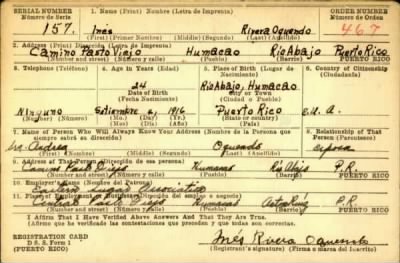 SERIAL NUMBER
Número de Serie
157.
1. Name (Print) Nombre (Letra de Imprenta)
Inés Rivera Oquendo
(First) (Primer Nombre) (Middle) (Segundo) (Last) (Apellido)
ORDER NUMBER
Número de Orden
467
2. Address (Print) Dirección (Letra de Imprenta)
Camino Pasto Viejo Humacao Río Abajo Puerto Rico
(Barrio) PUERTO RICO
3. Telephone (Teléfono)
Ninguno
4. Age in Years (Edad)
24
DATE OF BIRTH
Fecha Nacimiento
Setiembre 6, 1916
(Mo.) (Day) (Yr.)
(Mes) (Día) (Año)
5. Place of Birth (Lugar de Nacimiento)
Río Abajo, Humacao
City or Town
(Ciudad o Pueblo)
Puerto Rico
(State or country)
(País)
6. Country of Citizenship
(Ciudadanía)
E.U. A.
7. Name of Person Who Will Always Know Your Address (Nombre de la Persona que siempre sabrá su dirección)
Andrea Oquendo
(First) (Primer Nombre) (Middle) (Segundo) (Last) (Apellido)
8. Relationship of That Person (Parentesco)
esposa
9. Address of That Person (Dirección de esa persona)
Camino Pasto Viejo Humacao Río Abajo P.R.
(Barrio) PUERTO RICO
10. Employer's Name (Nombre del Patrono)
Eastern Sugar Associates
11. Place of Employment
Central Pasto Viejo Humacao P.R.
(Barrio) PUERTO RICO
I Affirm That I Have Verified Above Answers And That They Are True.
(Afirmo que he verificado las contestaciones que preceden y que todas son correctas).
REGISTRATION CARD
D. S. S. Form 1
Inés Rivera Oquendo
(Registrant's signature) (Firma o marca del Inscrito)